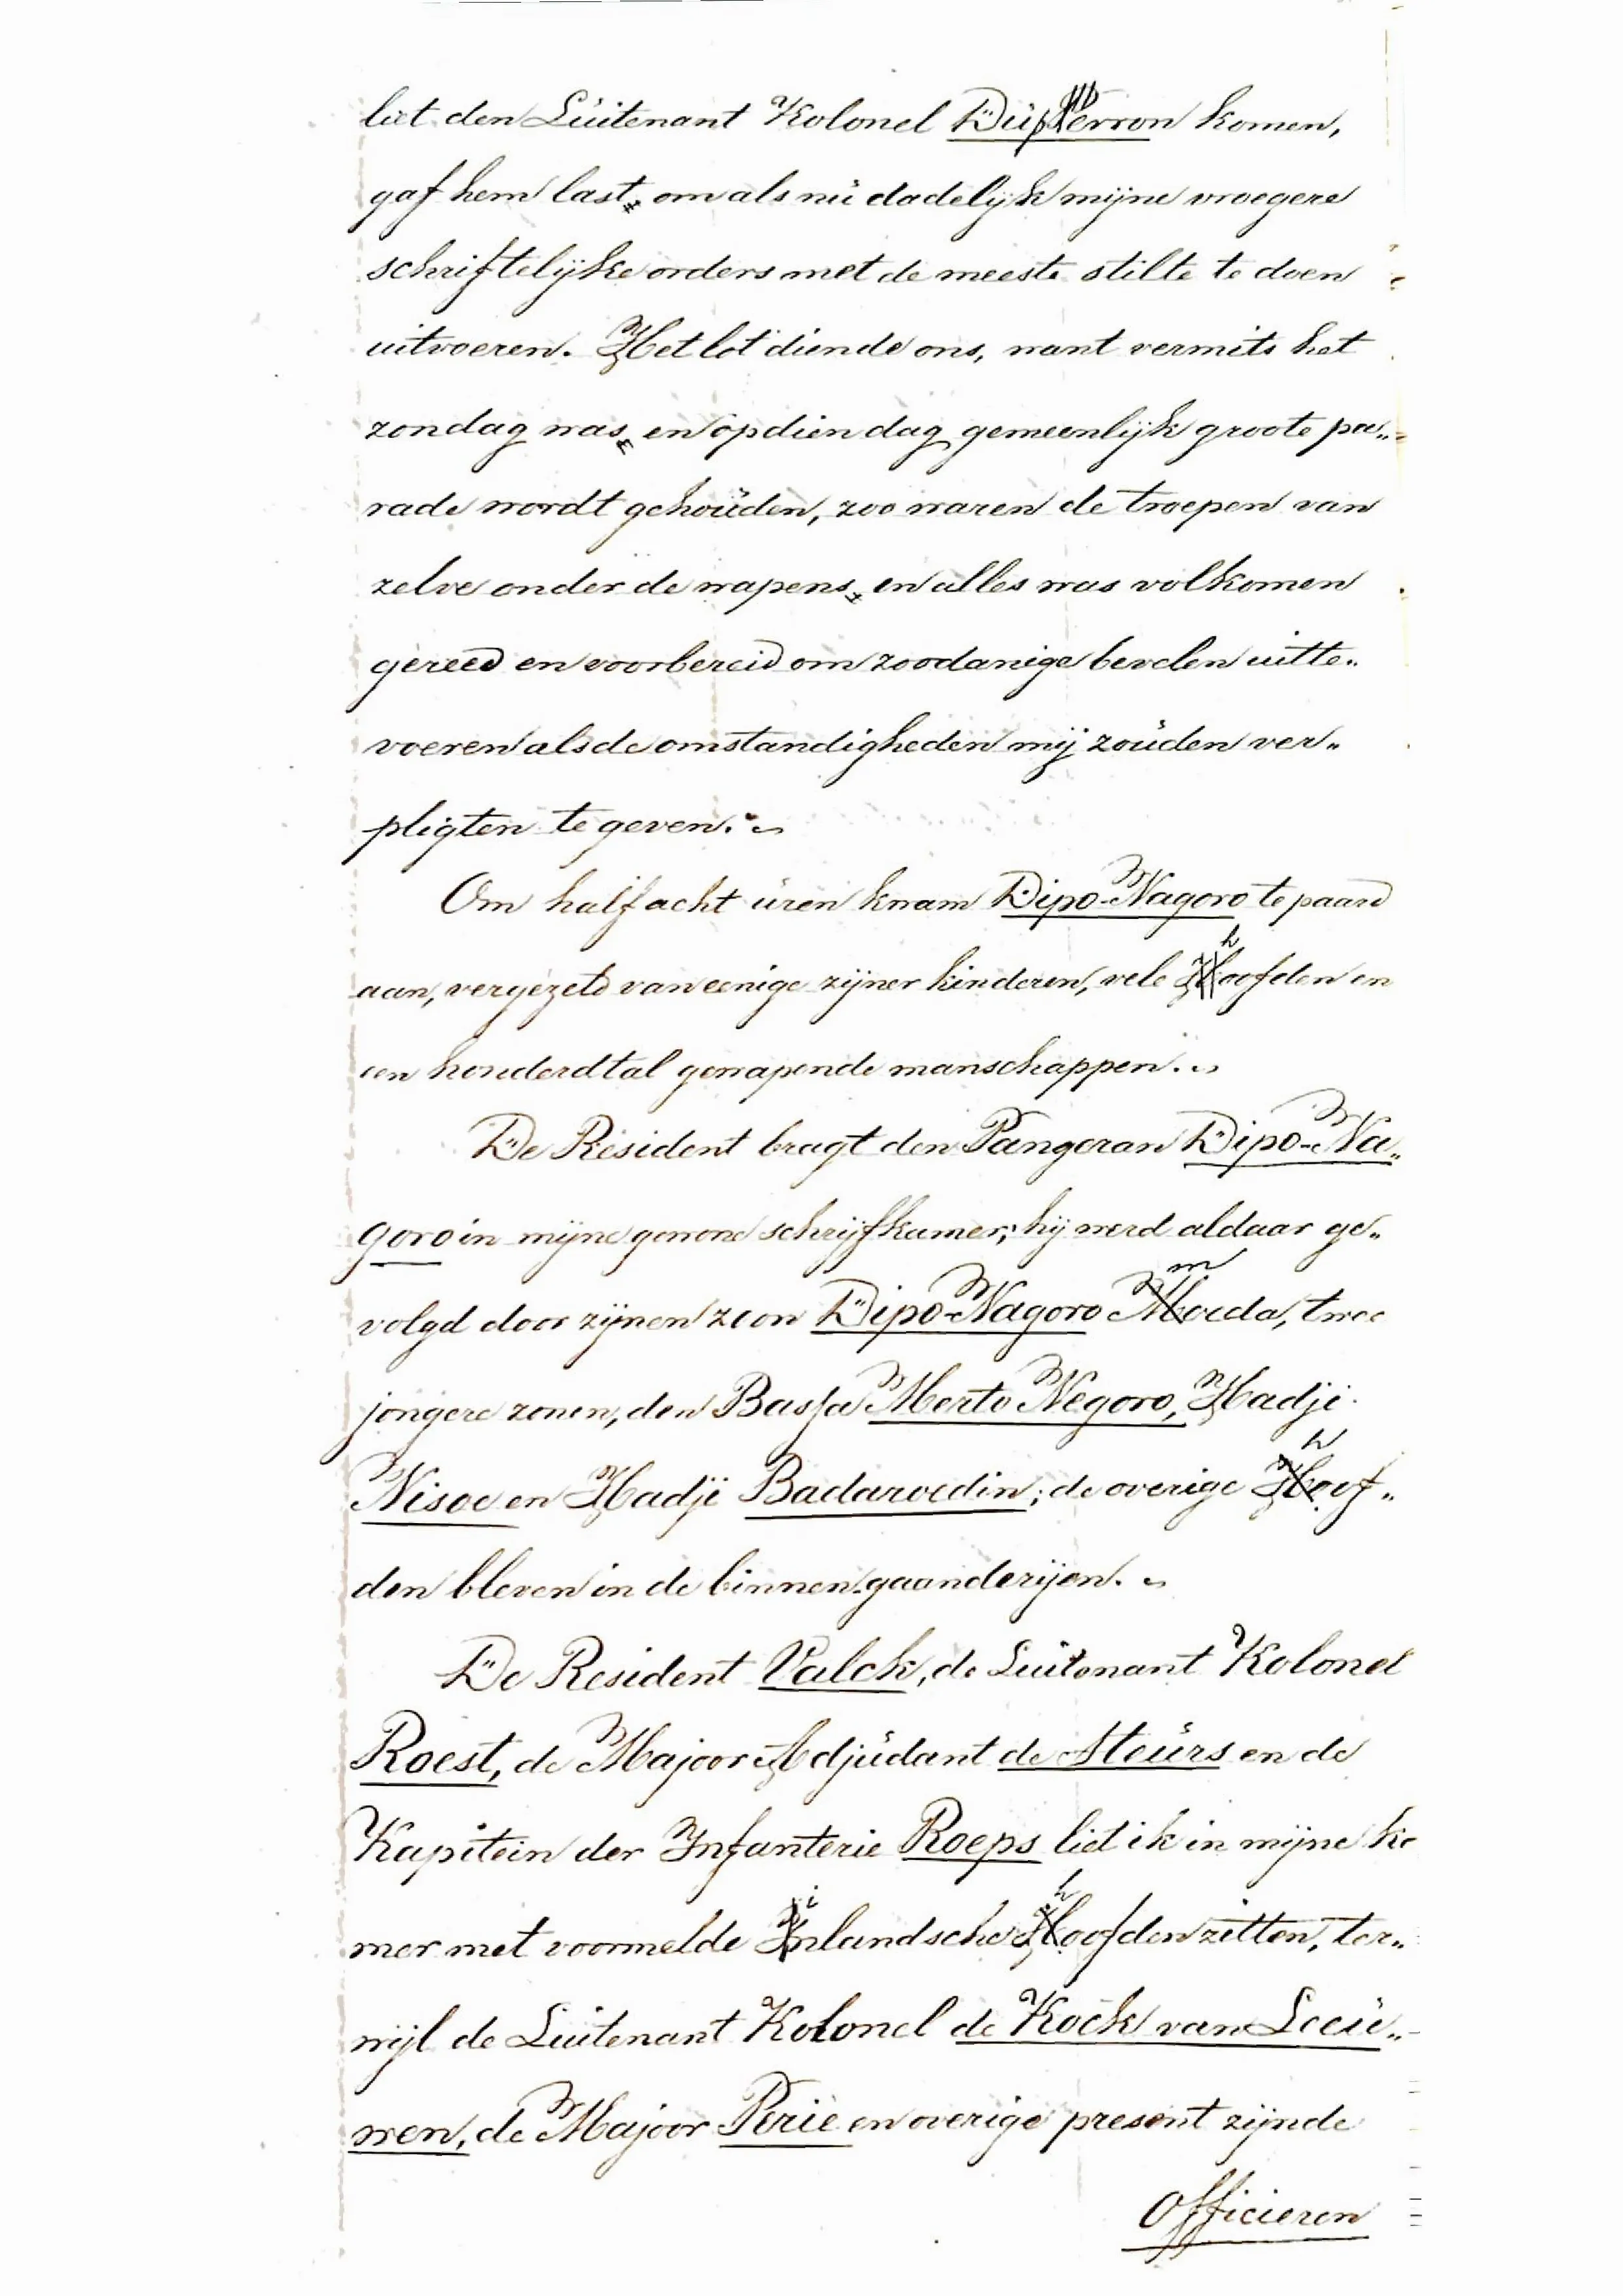 liet den Luitenant Kolonel DuPerron komen,
gaf hem last, om als nu dadelijk mijne vroegere
schriftelijke orders met de meeste stilte te doen
uitvoeren. Het lot diende ons, want vermits het
zondag was, en op dien dag gemeenlijk groote pa„
rade wordt gehouden, zoo waren de troepen van
zelve onder de wapens, en alles was volkomen
gereed en voorbereid om zoodanige bevelen uitte„
voeren als de omstandigheden mij zouden ver„
pligten te geven.
Om half acht uren kwam Dipo-Nagoro te paard
aan, vergezeld van eenige zijner kinderen, vele hoofden en
een honderdtal gewapende manschappen.
De Resident bragt den Pangeran Dipo-Na„
goro in mijne gewone schrijfkamer; hij werd aldaar ge„
volgd door zijnen zoon Dipo-Nagoro moeda, twee
jongere zonen, den Bassa Merto Negoro, Hadji
Nisoe en Hadji Badaroedin; de overige hoof„
den bleven in de binnen-gaanderijen.
De Resident Valck, de Luitenant Kolonel
Roest, de Majoor Adjudant de Steurs en de
Kapitein der Infanterie Roeps liet ik in mijne ka
mer met voormelde inlandsche hoofden zitten, ter„
wijl de Luitenant Kolonel de Kock van Leeu„
wen, de Majoor Perié en overige present zijnde
Officieren